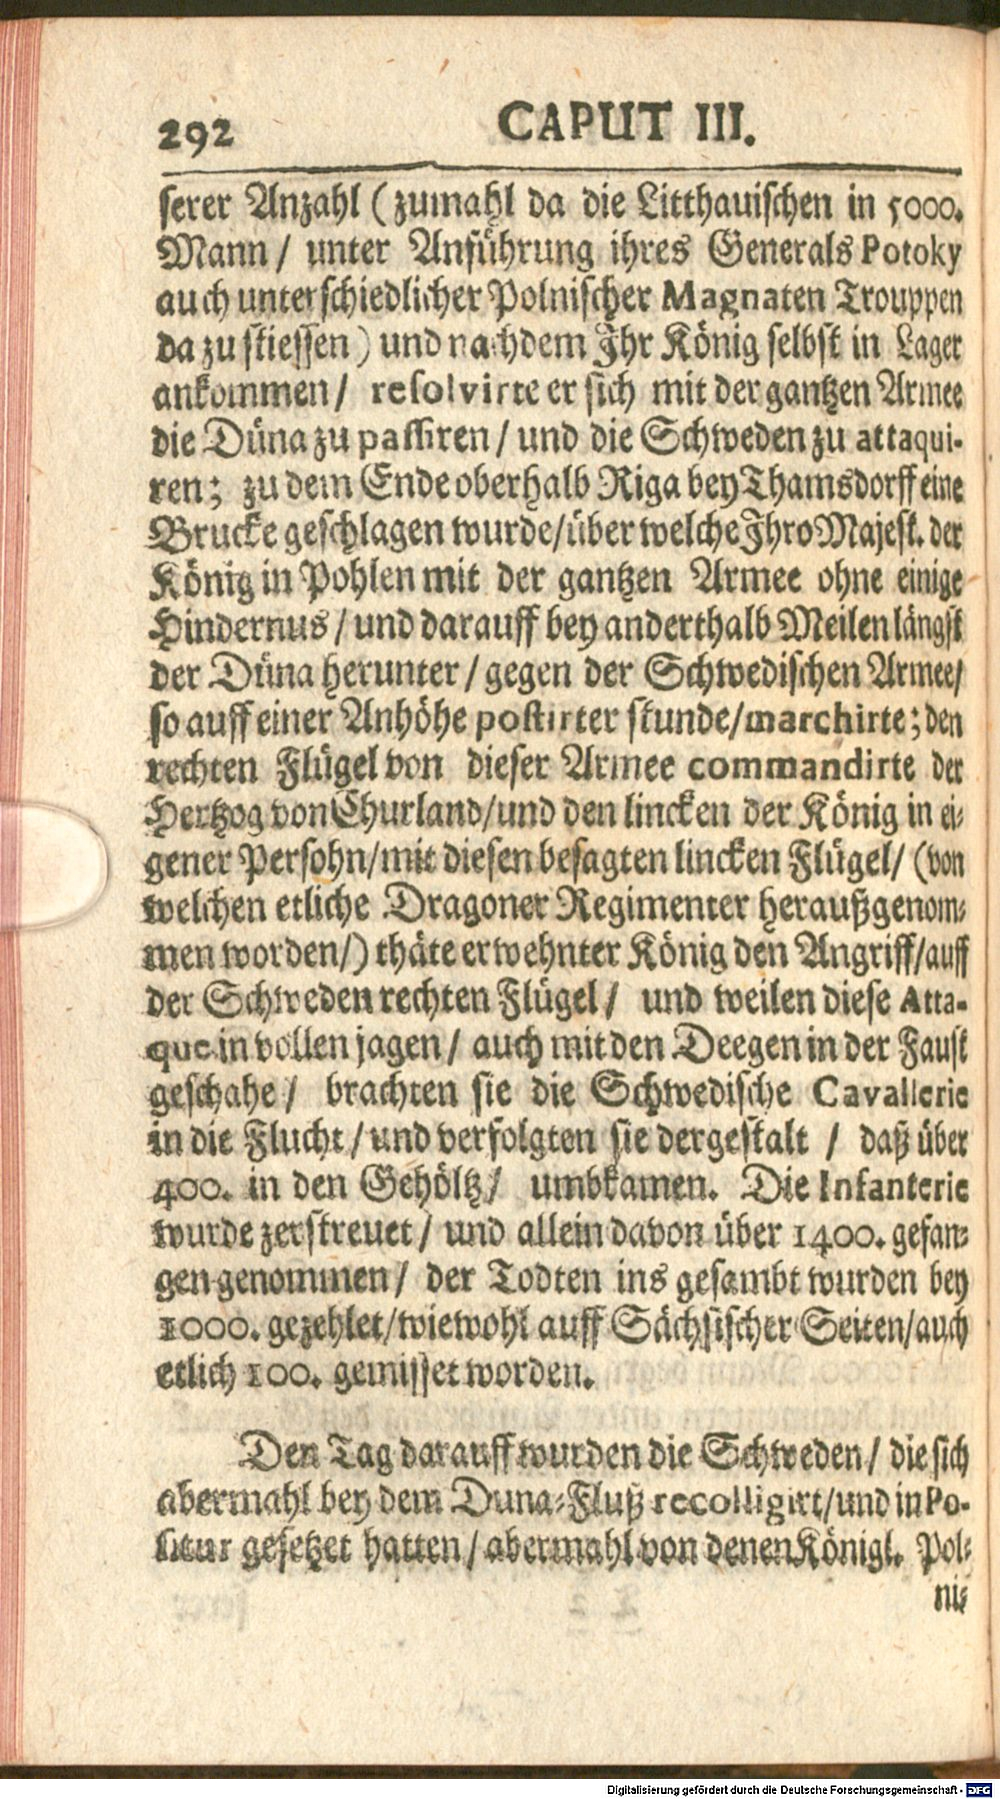 292 CAPUT III.
serer Anzahl (zumahl da die Litthauischen in 5000.
Mann/ unter Anführung ihres Generals Potoky
auch unterschiedlicher Polnischer Magnaten Trouppen
da zu stiessen) und nachdem Ihr König selbst in Lager
ankommen/ resolvirte er sich mit der gantzen Armee
die Düna zu passiren/ und die Schweden zu attaqui-
ren; zu dem Ende oberhalb Riga bey Thamsdorff eine
Brucke geschlagen wurde/über welche Ihro Majest. der
König in Pohlen mit der gantzen Armee ohne einige
Hindernus/ und darauff bey anderthalb Meilen längst
der Düna herunter/ gegen der Schwedischen Armee/
so auff einer Anhöhe postirter stunde/marchirte; den
rechten Flügel von dieser Armee commandirte der
Hertzog von Churland/und den lincken der König in ei-
gener Persohn/mit diesen besagten lincken Flügel/ (von
welchen etliche Dragoner Regimenter heraußgenom-
men worden/) thäte erwehnter König den Angriff/auff
der Schweden rechten Flügel/ und weilen diese Atta-
que in vollen jagen/ auch mit den Deegen in der Faust
geschahe/ brachten sie die Schwedische Cavallerie
in die Flucht/und verfolgten sie dergestalt / daß über
400. in den Gehöltz/ umbkamen. Die Infanterie
wurde zerstreuet/ und allein davon über 1400. gefan-
gen genommen/ der Todten ins gesambt wurden bey
1000. gezehlet/wiewohl auff Sächsischer Seiten/auch
etlich 100. gemisset worden.
Den Tag darauff wurden die Schweden/ die sich
abermahl bey dem Duna-Fluß recolligirt/und in Po-
situr gesetzet hatten/abermahl von denen Königl. Pol-
ni-
Digitalisierung gefördert durch die Deutsche Forschungsgemeinschaft - DFG